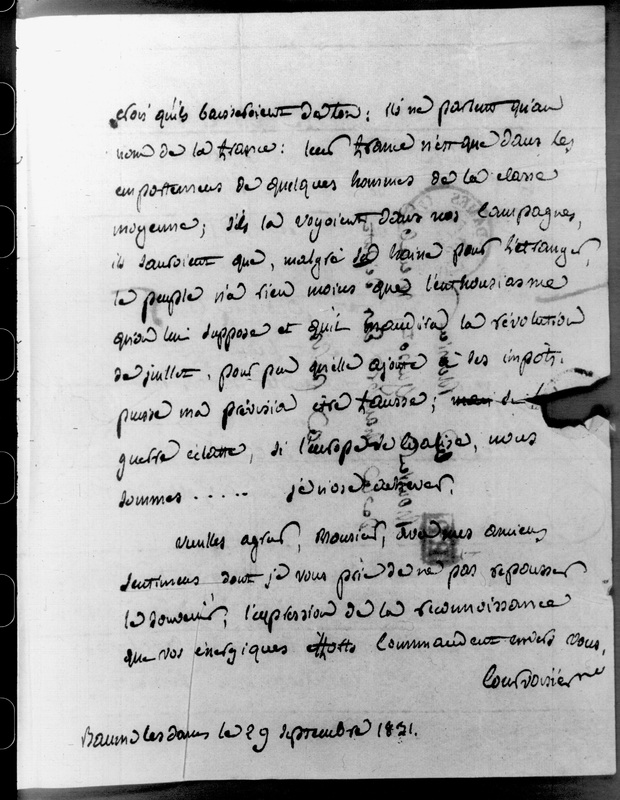 crois qu'ils baisseroient de ton ; ils ne parlent qu'au
nom de la france : leur france n'est que dans les
emportemens de quelques hommes de la classe
moyenne ; s'ils la voyoient dans nos campagnes,
ils sauroient que, malgré sa haine pour l'étranger,
le peuple n'a rien moins que l'enthousiasme
qu'on lui suppose et qu'il maudira la révolution
de juillet, pour peu qu'elle ajoute à ses impots.
puisse ma prévision etre fausse ; mais si la
guerre éclatte, si l'europe se coalise, nous
sommes ..... je n'ose achever.
veuillez agréer, Monsieur, avec mes anciens
sentimens dont je vous prie de ne pas repousser
le souvenir, l'expression de la reconnoissance
que vos énergiques efforts commandent envers vous.
Courvoisier
Baume les dames le 29 septembre 1831.